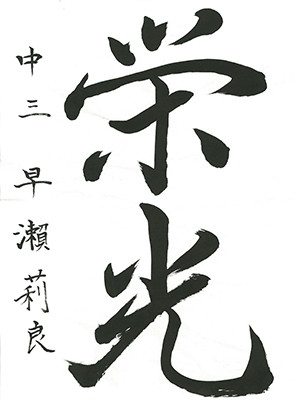 栄光
中三 早瀬莉良